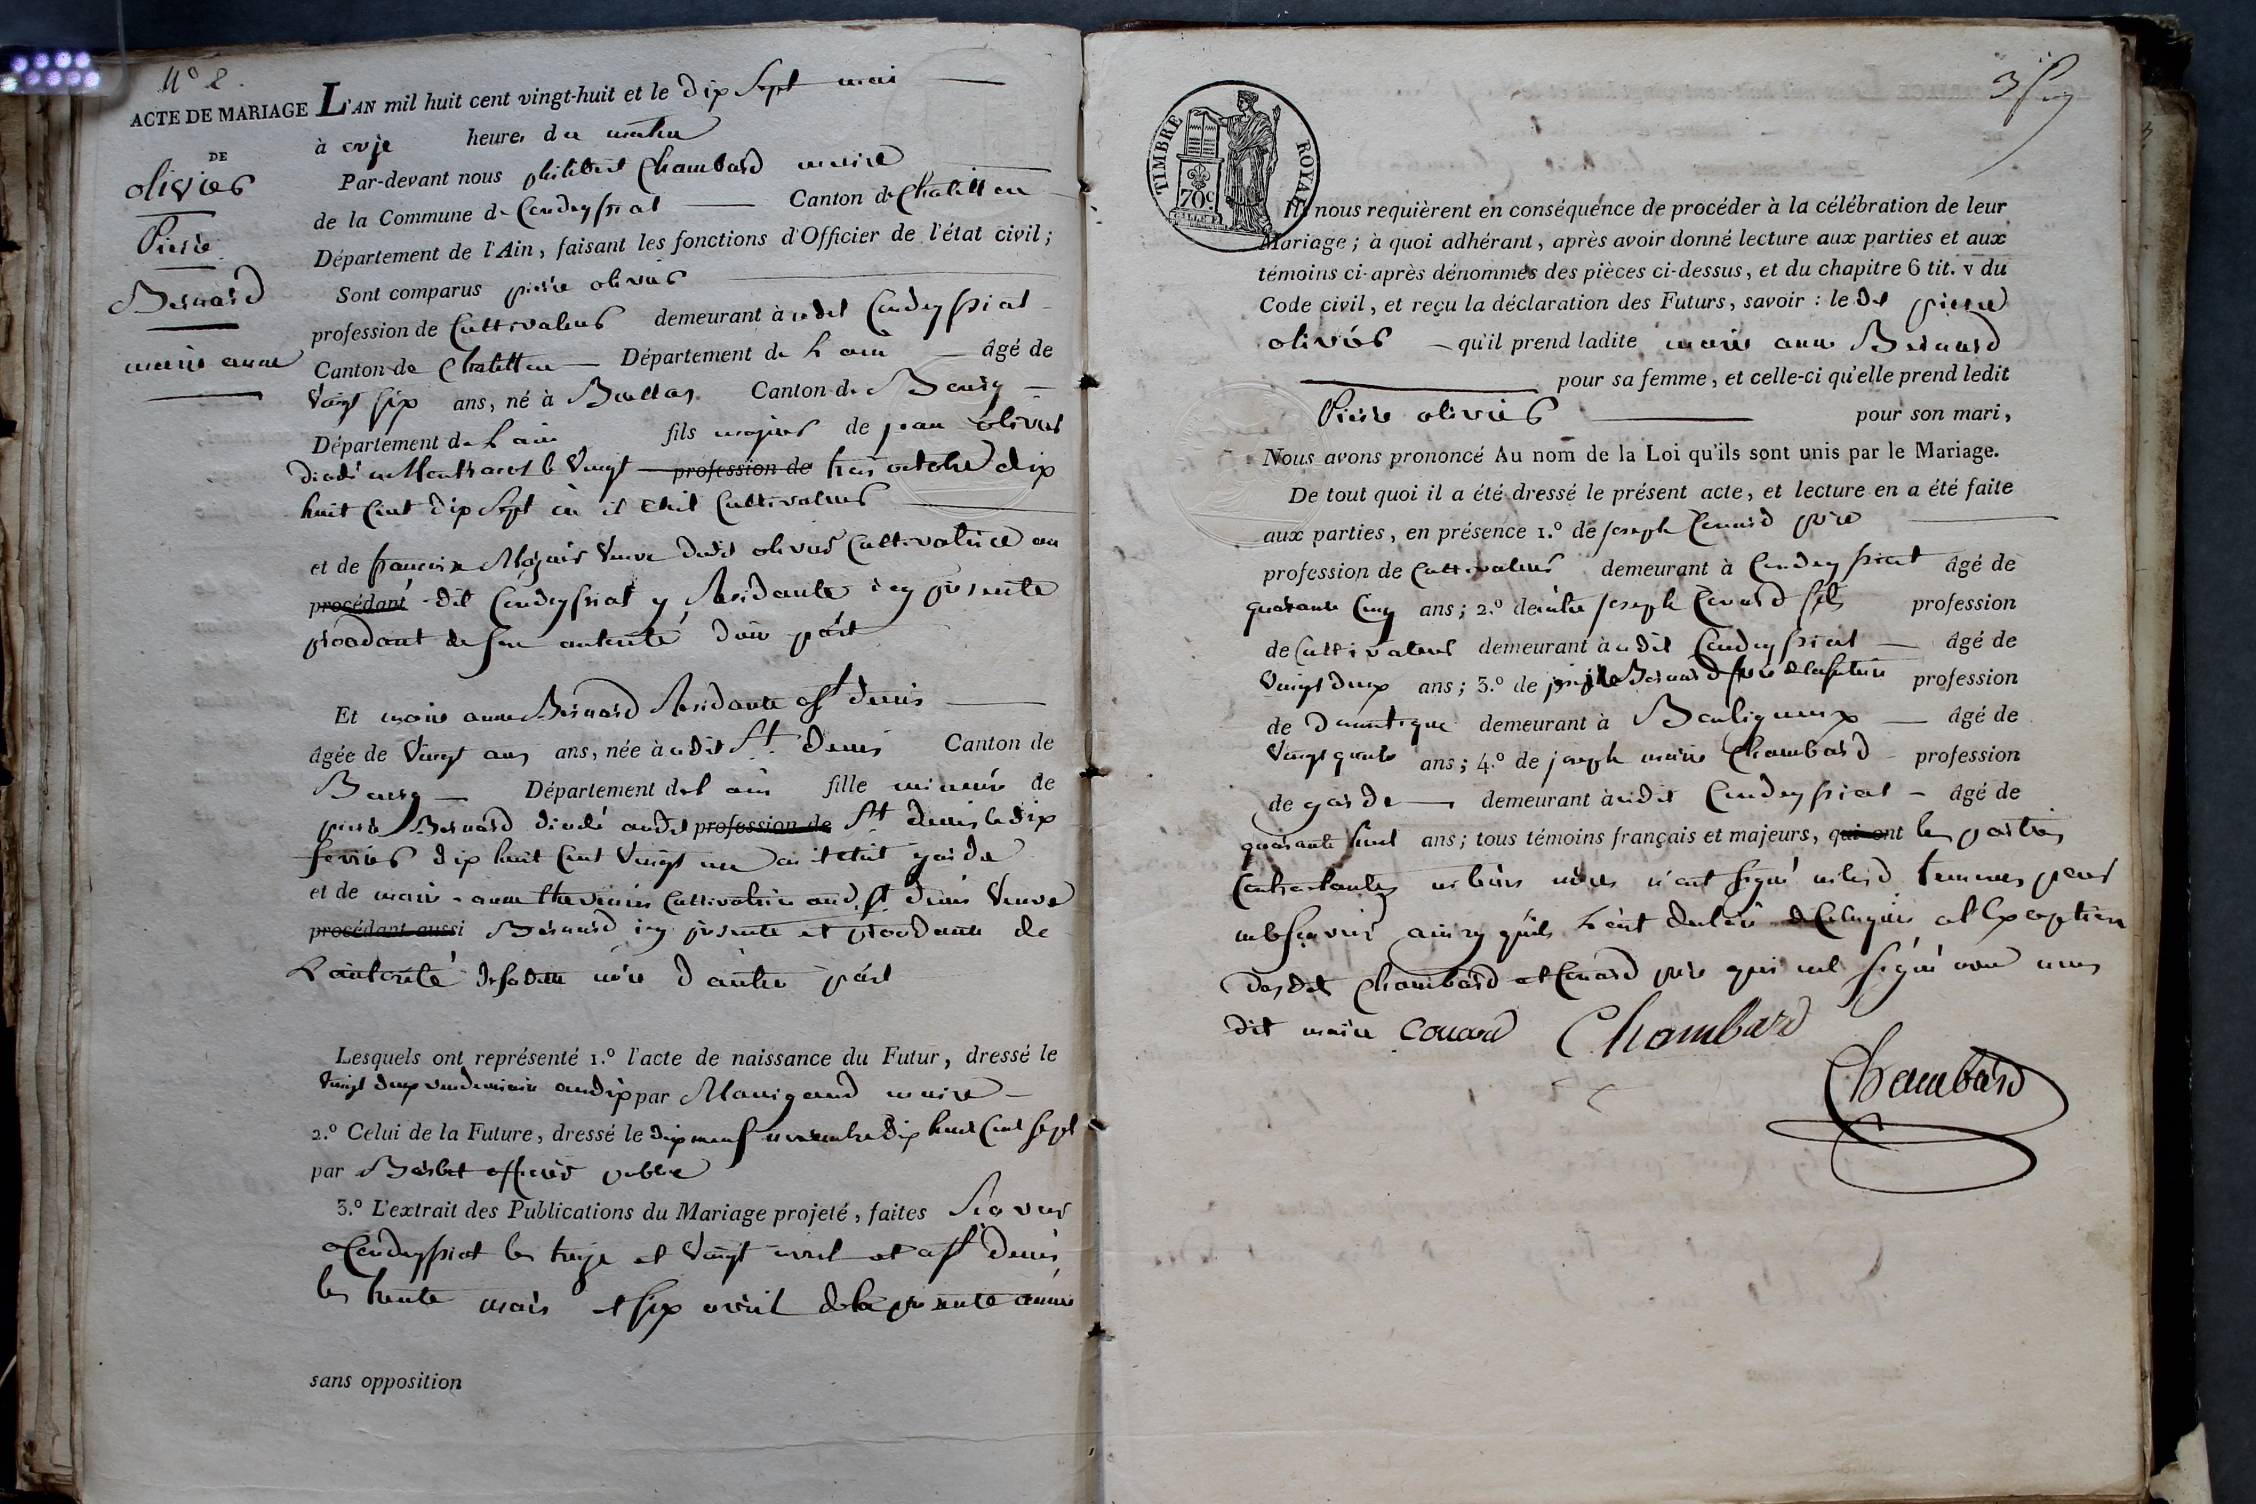 N° 2.
ACTE DE MARIAGE
DE
olivier
Pierre
Bernard
marie anne
L'AN mil huit cent vingt-huit et le dix Sept mai
à onze heures du matin
Par-devant nous philibert Chambard maire
de la Commune de Condeyssiat Canton de Chatillon
Département de l'Ain, faisant les fonctions d'Officier de l'état civil;
Sont comparus pierre olivier
profession de Cultivateur demeurant à udit Condeyssiat
Canton de Chatillon Département de L ain âgé de
Vingt six ans, né à Buellas Canton de Bourg
Département de L ain fils majeur de jean olivier
décédé le Vingt profession de trois octobre dix
huit Cent dix Sept où il etoit Cultivateur
et de francoise Veuve dudit olivier Cultivatrice au
procédant dit Condeyssiat y Residante icy presente
procedant de son autorité d'une part
Et marie anne Bernard Residante a St denis
âgée de Vingt ans ans, née à udit St. denis Canton de
Bourg Département de L ain fille mineure de
pierre Bernard décédé audit profession de St denis le dix
fevrier dix huit Cent Vingt un ou il etoit garde
et de marie anne thevenin Cultivatrice aud. St denis Veuve
procédant aussi Bernard icy presente et procedante de
L'autorité de sadite mère d'autre part
Lesquels ont représenté 1.º l'acte de naissance du Futur, dressé le
Vingt deux vendemiaire an dix par maire
2.º Celui de la Future, dressé le dix neuf novembre dix huit Cent sept
par Barbet officier public
3.º L'extrait des Publications du Mariage projeté, faites Sçavoir
a Condeyssiat les treize et Vingt avril et a St denis
les trente mars et six avril de la presente année
sans opposition
TIMBRE ROYAL
70 c.
Ils nous requièrent en conséquence de procéder à la célébration de leur
Mariage; à quoi adhérant, après avoir donné lecture aux parties et aux
témoins ci-après dénommés des pièces ci-dessus, et du chapitre 6 tit. v du
Code civil, et reçu la déclaration des Futurs, savoir: le dit pierre
olivier qu'il prend ladite marie anne Bernard
pour sa femme, et celle-ci qu'elle prend ledit
Pierre olivier pour son mari,
Nous avons prononcé Au nom de la Loi qu'ils sont unis par le Mariage.
De tout quoi il a été dressé le présent acte, et lecture en a été faite
aux parties, en présence 1.º de Joseph Couard père
profession de Cultivateur demeurant à Condeyssiat âgé de
quarante Cinq ans; 2.º de autre Joseph Couard fils profession
de Cultivateur demeurant à udit Condeyssiat âgé de
Vingt deux ans; 3.º de Bernard frere de la future profession
de domestique demeurant à Bouligneux âgé de
Vingt quatre ans; 4.º de joseph marie Chambard profession
de garde demeurant à udit Condeyssiat âgé de
quarante huit ans; tous témoins français et majeurs, qui ont les parties
Contractantes ni leurs mères n'ont signé ni lesd. temoins pour
ne le sçavoir ainsy qu'ils L'ont declaré de Ce requis a L'exception
desdits Chambard et Couard père qui ont signé avec nous
dit maire Couard Chambard
Chambard